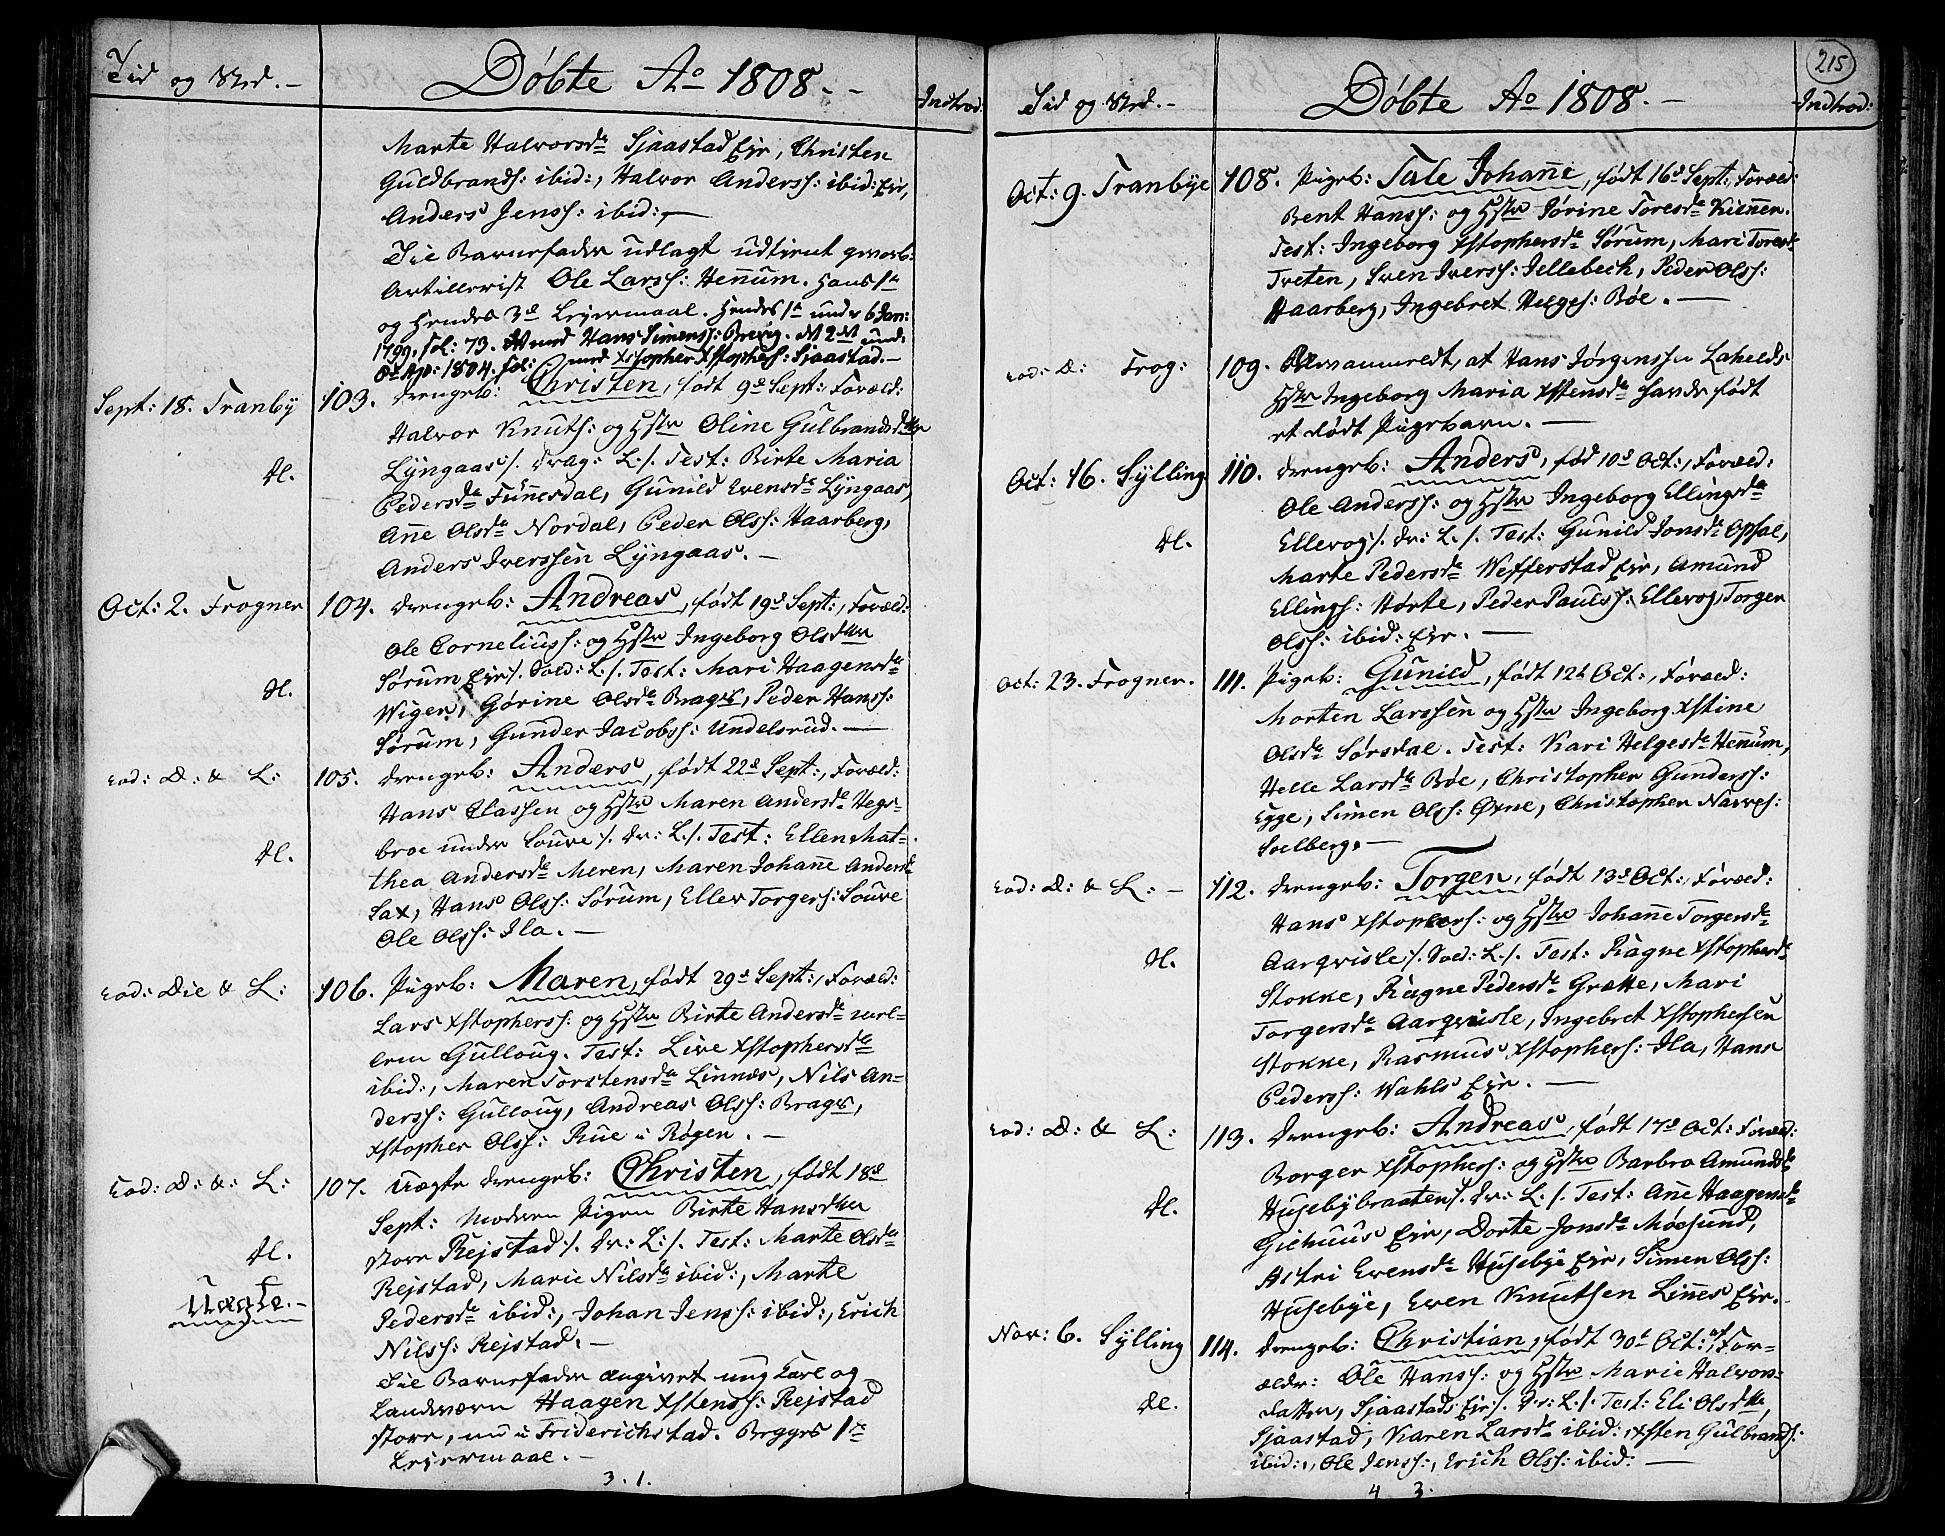 Tid og Sted. –
Döbte Aᵒ 1808. –
Indtrod:
Marte Halvorsdr Sjaastad Eir, Christen
Guldbrands: ibid:, Halvor Anderss: ibid: Eir,
Anders Jenss: ibid: –
Til Barnefader udlagt udtient gevorb:
Artillerist Ole Larss: Hennum. Hans 1te
og Hendes 3d Leiermaal. Hendes 1te under 6 Jan:
1799. fol: 73. med Hans Simenss: Brevig. No 2 und:
8d Apr: 1804. fol: med Xstopher Xstophers: Sjaastad. –
Sept: 18. Tranby
103. drengeb: Christen, født 9d Sept: Foræld:
Halvor Knuts: og Hstr Oline Gulbrandsdtter
Lÿngaas /. Drag: L: /. Test: Birte Maria
dl.
Pedersdr Funnesdal, Gunild Evensdr Lÿngaas,
Anne Olsdr Nordal, Peder Olss: Haarberg,
Anders Iverssen Lÿngaas. –
Oct: 2. Frogner
104. drengeb: Andreas, født 19d Sept:, Foræld:
Ole Corneliuss: og Hstr Ingeborg Olsdtter
Sørum Eir /. Soed: L: /. Test: Mari Haagensdr
dl.
Wiger, Gørine Olsdr Brages, Peder Hanss:
Sørum, Gunder Jacobss: Undelsrud. –
eod: D: & L:
105. drengeb: Anders, født 22d Sept:, Foræld:
Hans Classen og Hstr Maren Andersdr Hegs-
broe under Soure /. Dr: L: /. Test: Ellen Mat-
dl.
thea Andersdr Meren, Maren Johanne Andersdr
Sax, Hans Olss: Sørum, Ellev Torgers: Soure
Ole Olss: Ila. –
eod: Die & L:
106. Pigeb: Maren, født 29d Sept:, Foræld:
Lars Xstopherss: og Hstr Birte Andersdr
Gulloug. Test: Live Xstophersdr
ibid:, Maren Torstensdr Linnæs, Nils An-
derss: Gulloug, Andreas Olss: Brages,
Xstopher Olss: Rue i Røgen. –
Eod: D: &: L:
107. Uægte drengeb: Christen, født 18d
Sept: Moderen Pigen Birte Hansdtter
store Rejstad /. Dr: L: /. Test: Marte Olsdr
dl.
Rejstad, Marie Nilsdr ibid:, Marte
Uægte. –
Pedersdr ibid:, Johan Jenss: ibid:, Erich
Nilss: Rejstad. –
Til Barnefader angivet ung Karl og
Landværn Haagen Xstenss: Rejstad
store, nu i Friderichstad. Begges 1te
Leiermaal. –
3. 1.
215
Tid og Sted. –
Döbte Aᵒ 1808. –
Indtrod:
Oct: 9. Tranbye
108. Pigeb: Tale Johanne, født 16d Sept:, Foræld:
Bent Hanss: og Hstr Jørine Toresdr Kinnen.
Test: Ingeborg Xstophersdr Sørum, Mari Toresdr
Treten, Sven Iverss: Jellebech, Peder Olss:
Haarberg, Ingebret Helges: Bøe. –
eod: D: Frog:
109. at Hans Jørgenssen Lahelds
Hstr Ingeborg Maria Xstensdr havde født
et dødt Pigebarn. –
Oct: 16. Sÿlling
110. drengeb: Anders, fød 10d Oct:, Foræld:
Ole Anderss: og Hstr Ingeborg Ellingsdr
Ellevog /. Dr: L. /. Test: Gunild Jonsdr Opsal,
dl.
Marte Pedersdr Wefferstad Eir, Amund
Ellings: Hørte, Peder Pauls: Ellevog, Torger
Olss: ibid: Eir. –
Oct: 23. Frogner.
111. Pigeb: Gunild, født 12t Oct:, Foræld:
Morten Larssen og Hstr Ingeborg Xstine
Olsdr Sørsdal. Test: Kari Helgesdr Hennum,
Helle Larsdr Bøe, Christopher Gunderss:
Egge, Simen Olss: Øvne, Christopher Narves:
Soelberg. –
eod: D: & L: –
112. drengeb: Torgen, født 13d Oct:, Foræld:
Hans Xstophers: og Hstr Johanne Torgersdr
Aarqvisle /. Soed: L: /. Test: Ragne Xstophersdr
dl.
Stokke, Ragne Pedersdr Grette, Mari
Torgersdr Aarqvisle, Ingebret Xstophersen
Stokke, Rasmus Xstophers: Ila, Hans
Pederss: Wahls Eir. –
eod: D: & L:
113. drengeb: Andreas, født 17d Oct: Foræld:
Borger Xstophers: og Hstr Barbro Amundsdr
Husebybraaten /. Dr: L. /. Test: Anne Haagensdr
dl.
Giehuus Eir, Dorte Jonsdr Møesund,
Astri Evensdr Husebye Eir, Simen Olss:
Husebye, Even Knutsen Linnes Eir.
Nov: 6. Sÿlling
114. drengeb: Christian, født 30t Oct:, For-
ældr: Ole Hanss: og Hstr Marie Halvors:
datter, Sjaastads Eir /. Dr: L. /. Test: Eli Olsdtter,
dl.
Sjaastad, Karen Larsdr ibid:, Xsten Gulbrands:
ibid:, Ole Jenss:, Erich Olss: ibid: –
4. 3.